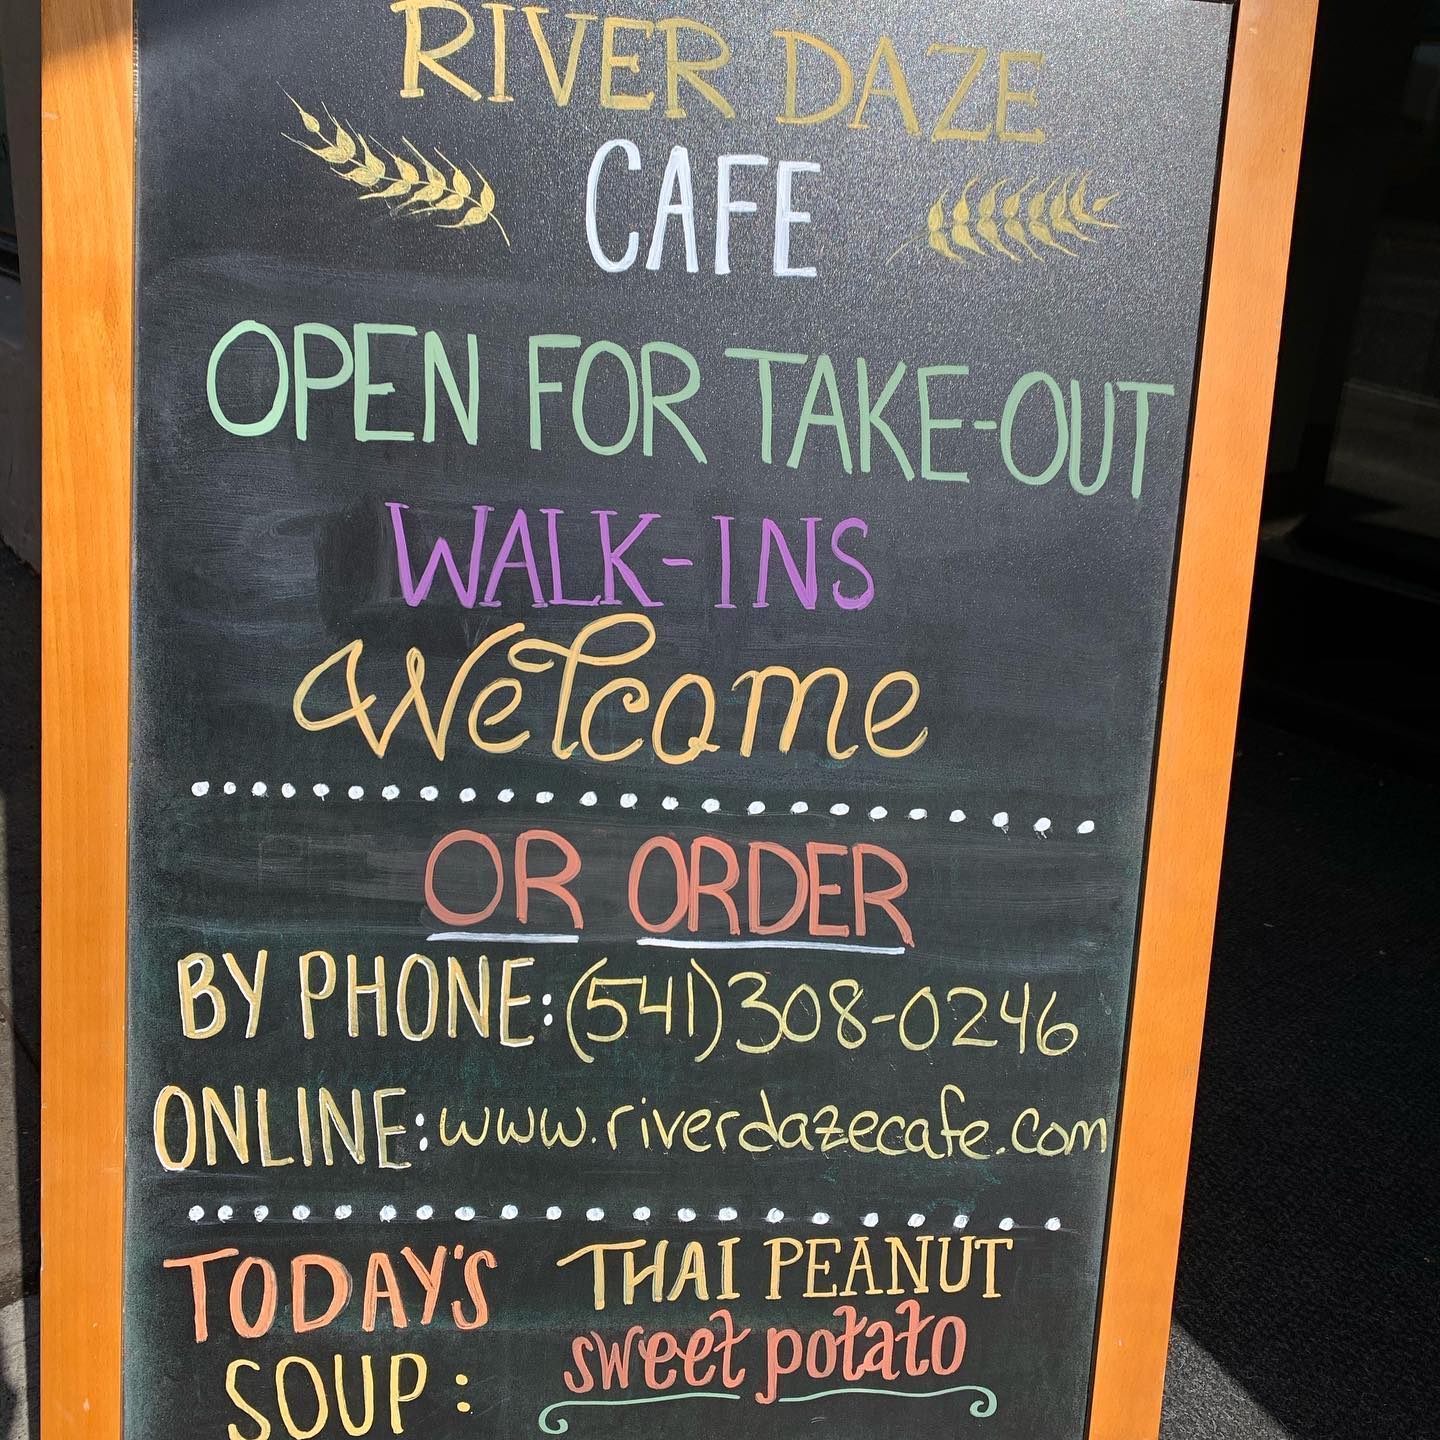 RIVER DAZE
CAFE
OPEN FOR TAKE-OUT
WALK-INS
Welcome
OR ORDER
BY PHONE: (541) 308-0246
ONLINE: www.riverdazecafe.com
TODAY'S
SOUP:
THAI PEANUT
sweet potato